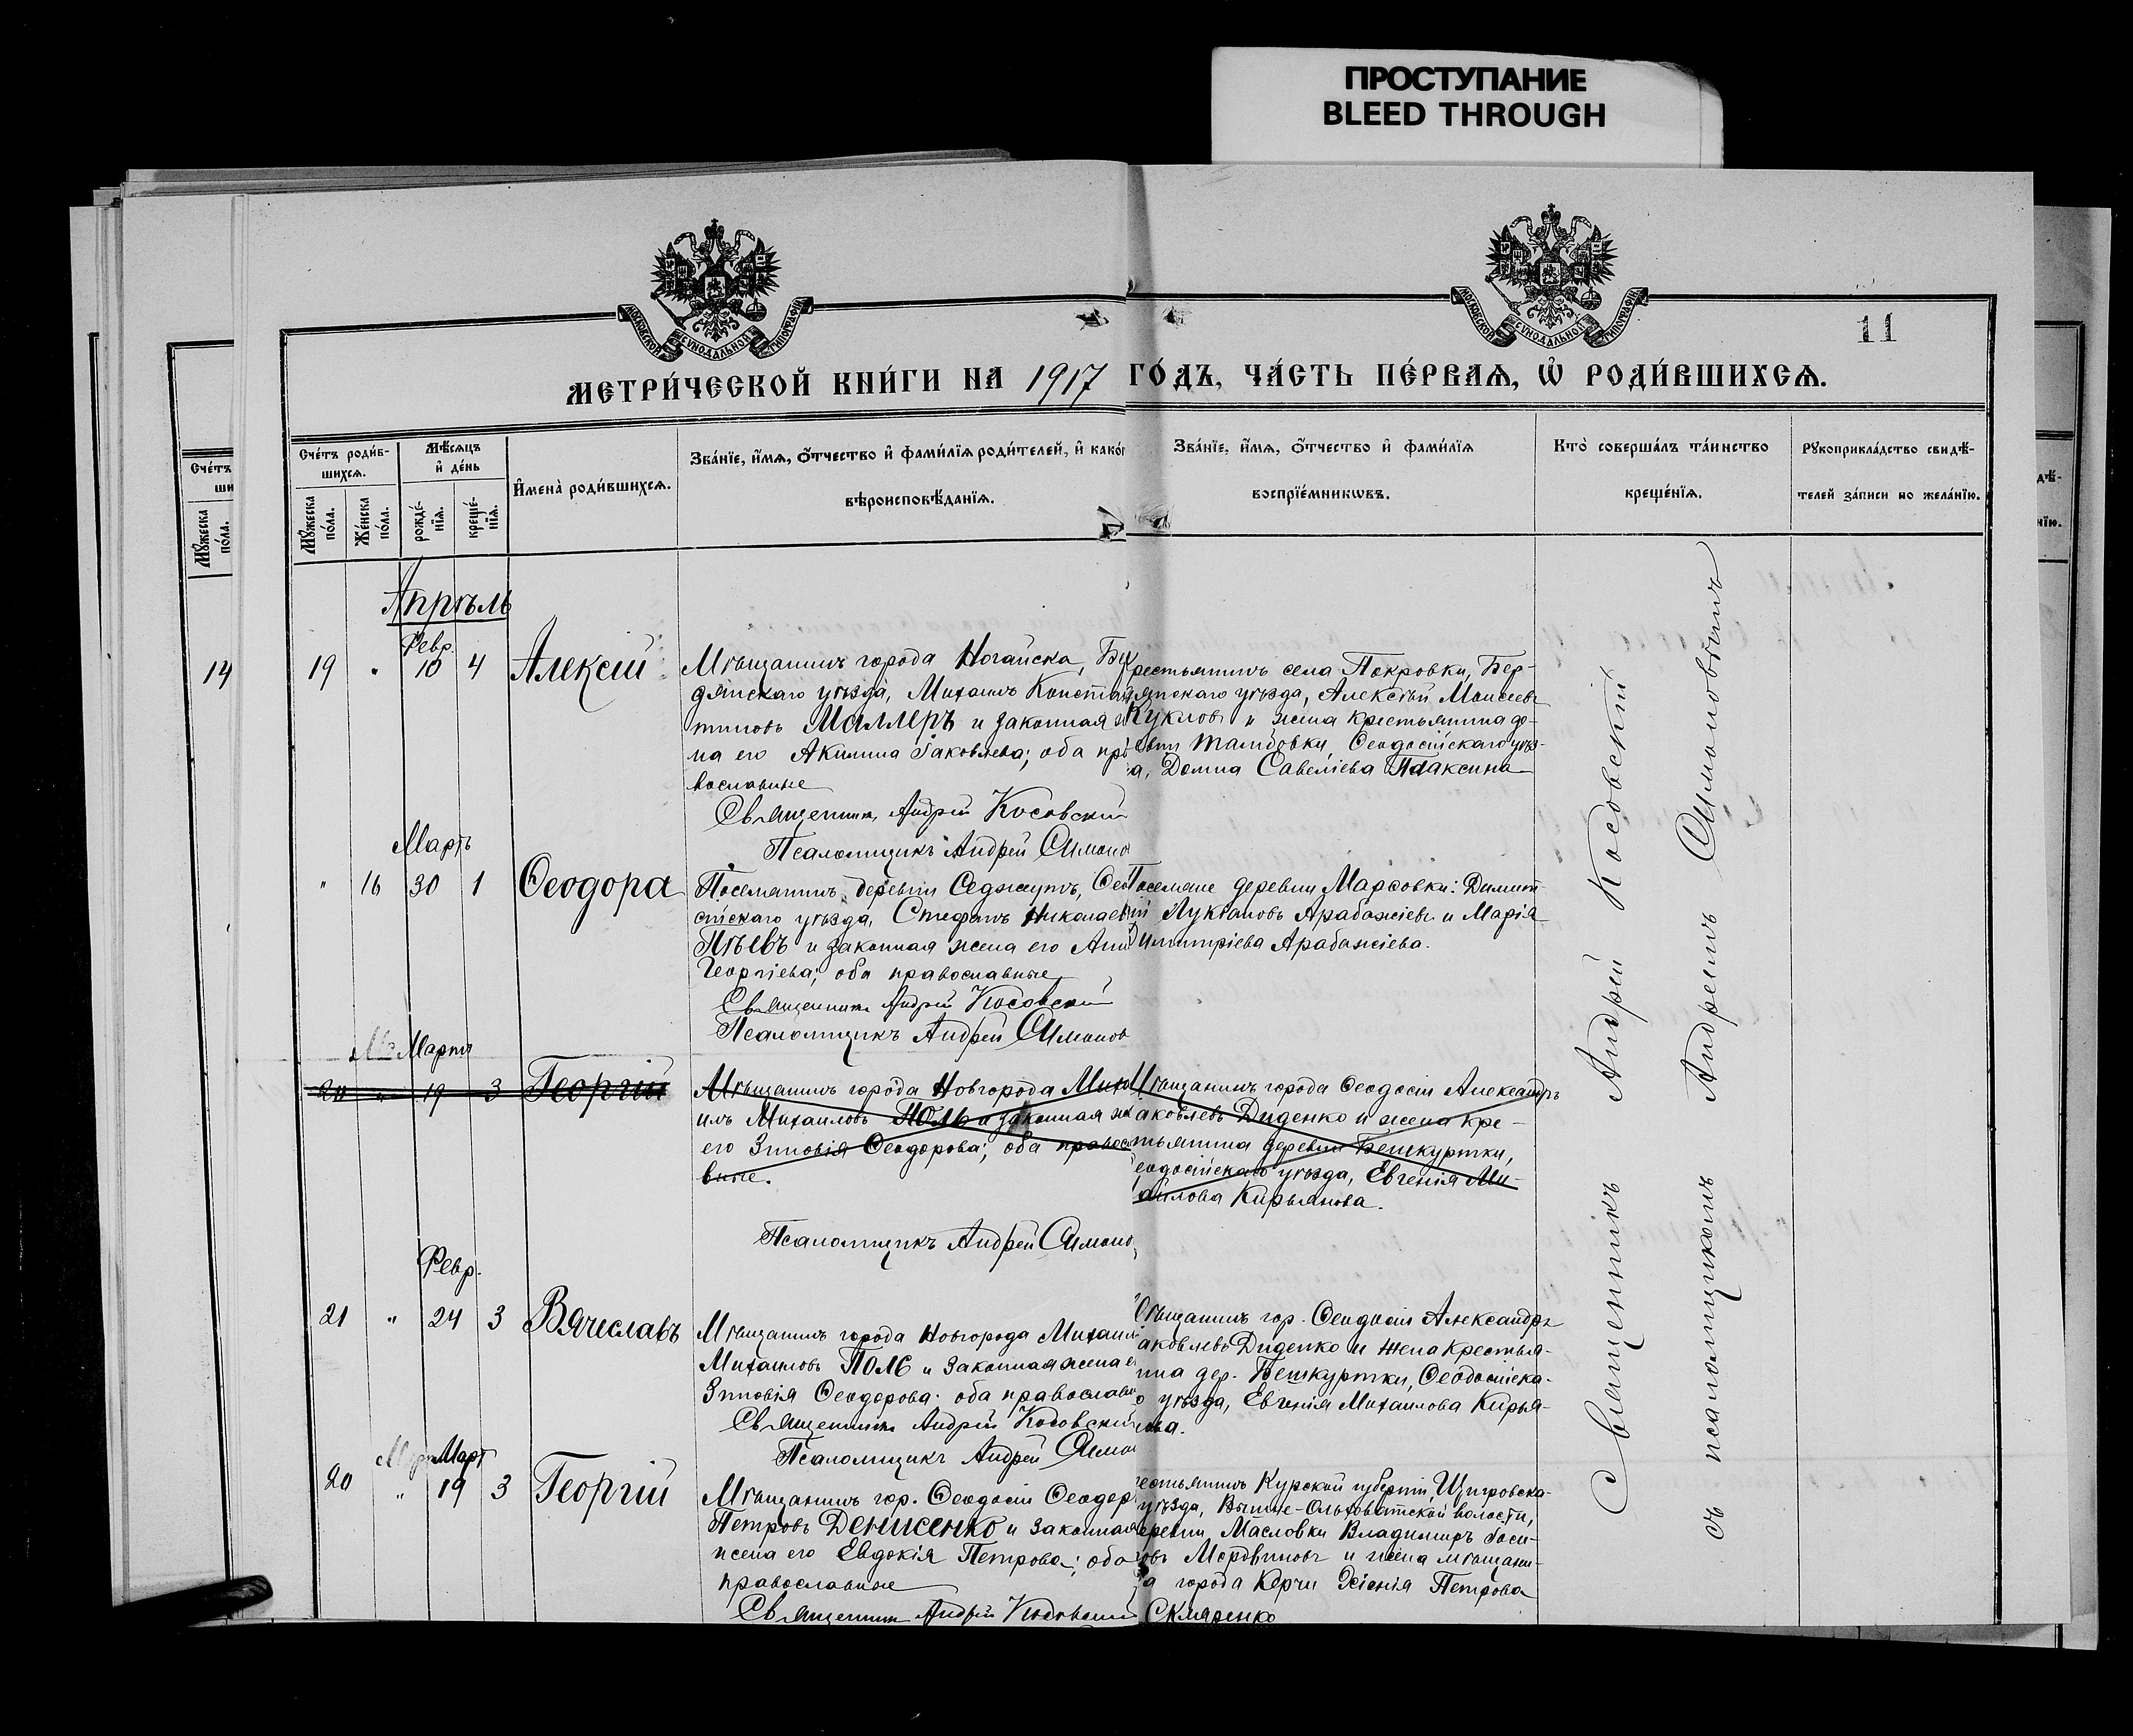 ПРОСТУПАНИЕ
BLEED THROUGH
МОСКОВСКОЙ СѴНОДАЛЬНОЙ ТИПОГРАФІИ
МОСКОВСКОЙ СѴНОДАЛЬНОЙ ТИПОГРАФІИ
11
МЕТРИ́ЧЕСКОЙ КНИ́ГИ НА 1917 ГО́ДЪ, ЧА́СТЬ ПЕ́РВАѦ, Ѡ҆ РОДИ́ВШИХСѦ.
Сче́тъ роди́в-
шихсѧ.
Мѣ́сѧцъ
и҆ де́нь
Мꙋ́жеска
по́ла.
Же́нска
по́ла.
рожде́-
нїѧ.
креще́-
нїѧ.
И҆мена̀ роди́вшихсѧ.
Зва́нїе, и҆́мѧ, ѻ҆́тчество и҆ фами́лїѧ роди́телей, и҆ како́г
вѣроисповѣ́данїѧ.
Зва́нїе, и҆́мѧ, ѻ҆́тчество и҆ фами́лїѧ
воспрїе́мникѡвъ.
Кто̀ соверша́лъ та́инство
креще́нїѧ.
Рꙋкоприкла́дство свидѣ́-
телей за́писи по жела́нїю.
Сче́тъ
ши
Мꙋ́жеска
по́ла.
14
Апрѣль
Февр.
19 " 10 4 Алексій
Мѣщанинъ города Ногайска, Бер
дянскаго уѣзда, Михаилъ Констан
тиновъ Маллеръ и законная же
на его Акилина Іаковлева; оба пра
вославные
Священникъ Андрей Косовскій
Псаломщикъ Андрей Симоно
рестьянинъ села Покровки, Бер-
дянскаго уѣзда, Алексѣй Моисеевъ
Куклов и жена крестьянина де-
ревни Тамбовки, Ѳеодосійскаго уѣз-
а, Домна Савеліева Плаксина
Мартъ
" 16 30 1 Ѳеодора
Поселянинъ деревни Седжеутъ, Ѳео
сійскаго уѣзда, Стефанъ Николаев
Пѣевъ и законная жена его Анн
Георгіева; оба православные
Священникъ Андрей Косовскій
Псаломщикъ Андрей Симонов
Поселяне деревни Марѳовки: Димит-
ій Лукіановъ Арабажіевъ и Марія
Димитріева Арабажіева.
Мартъ
20 " 19 3 Георгій
Мѣщанинъ города Новгорода Миха
илъ Михаиловъ Поль и законная же
его Зиновія Ѳеодорова; оба правосла
вные.
Псаломщикъ Андрей Симоно
Мѣщанинъ города Ѳеодосіи Александръ
аковлевъ Диденко и жена кре-
тьянина деревни Бешкуртки,
еодосійскаго уѣзда, Евгенія Ми-
аилова Кирьянова.
Февр.
21 " 24 3 Вячеславъ
Мѣщанинъ города Новгорода Михаил
Михаиловъ Поль и законная жена е
Зиновія Ѳеодорова: оба православн
Священникъ Андрей Косовскій
Псаломщикъ Андрей Симо
Мѣщанинъ гор. Ѳеодосіи Александръ
аковлевъ Диденко и жена крестья-
нина дер. Бешкуртки, Ѳеодосійска-
о уѣзда, Евгенія Михаилова Кирья-
нова.
Март
20 " 19 3 Георгій
Мѣщанинъ гор. Ѳеодосіи Ѳеодор
Петровъ Денисенко и законная
жена его Евдокія Петрова; оба
православные
Священникъ Андрей Косовскій
рестьянинъ Курской губерніи, Щигровска-
уѣзда, Вышне-Ольховатской волости,
еревни Масловки Владимиръ Іоси-
овъ Мордвиновъ и жена мѣщани-
а города Керчи Ксенія Петрова
Скляренко
Священникъ Андрей Косовскій
съ псаломщикомъ Андреемъ Симоновымъ